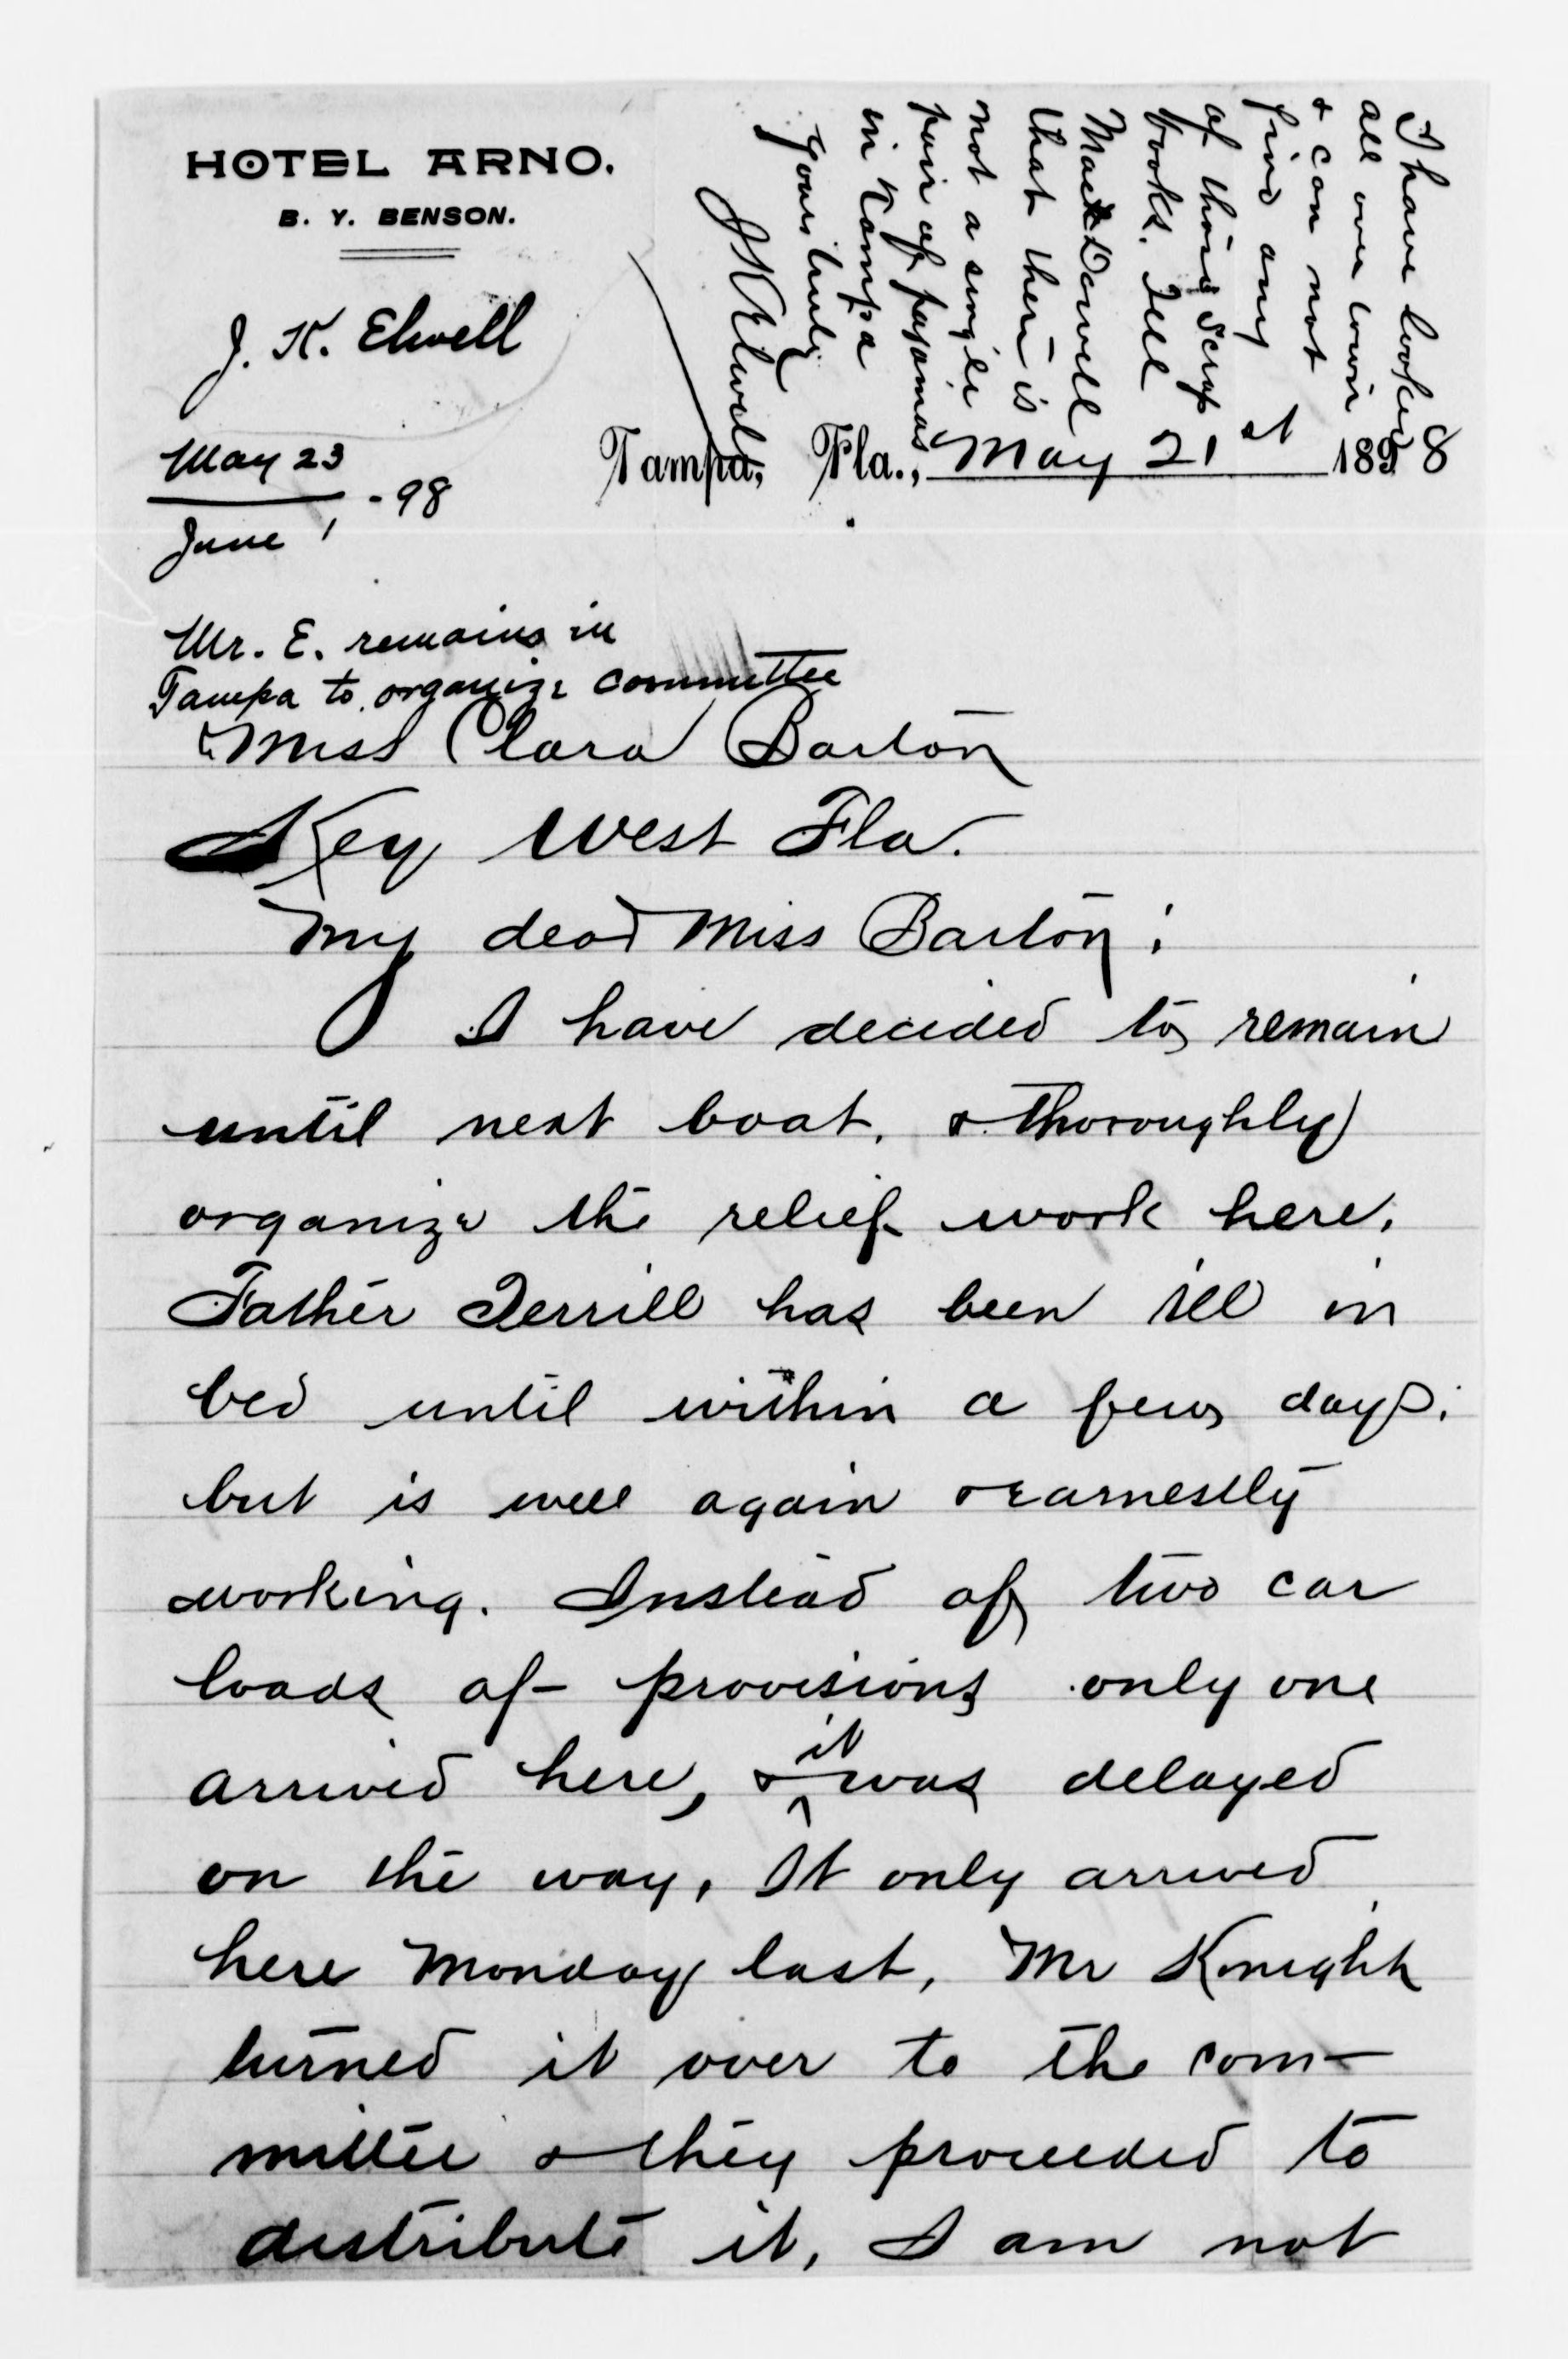 HOTEL ARNO.
B. Y. BENSON.
J. K. Elwell
May 23
- 98
June 1
Mr. E. remains in
Tampa to organize committee
I have looked
all over town
& can not
find any
of those Scrap
books. Tell
MacDowell
that there is
not a single
pair of pajamas
in Tampa
Yours truly
JK Elwell
Tampa, Fla., May 21st 1898
Miss Clara Barton
Key West Fla.
My dear Miss Barton;
I have decided to remain
until next boat, & thoroughly
organize the relief work here.
Father Terrill has been ill in
bed until within a few days;
but is well again & earnestly
working. Instead of two car
loads of provisions only one
arrived here, & it was delayed
on the way, It only arrived
here Monday last, Mr Knight
turned it over to the com-
mittee & they proceeded to
distribute it, I am not